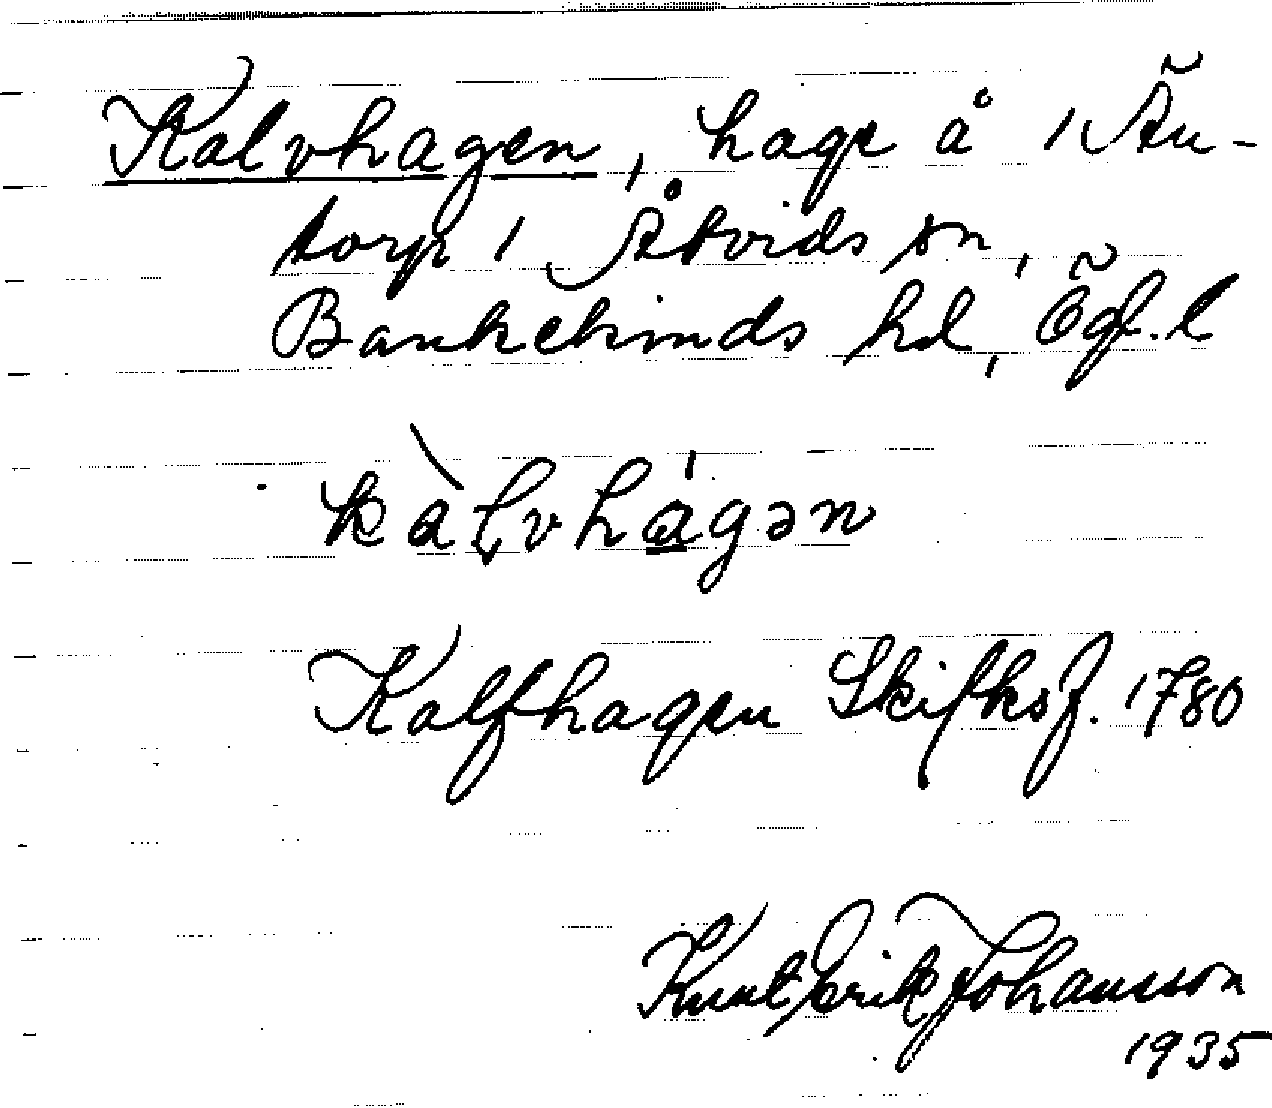 Kalvhagen, hage å 1 Än-
torp i Åtvids sn,
Bankekinds hd, Ögl. l
kàlvhágən
Kalfhagen Skifksf. 1780
Knut Erik Johansson
1935